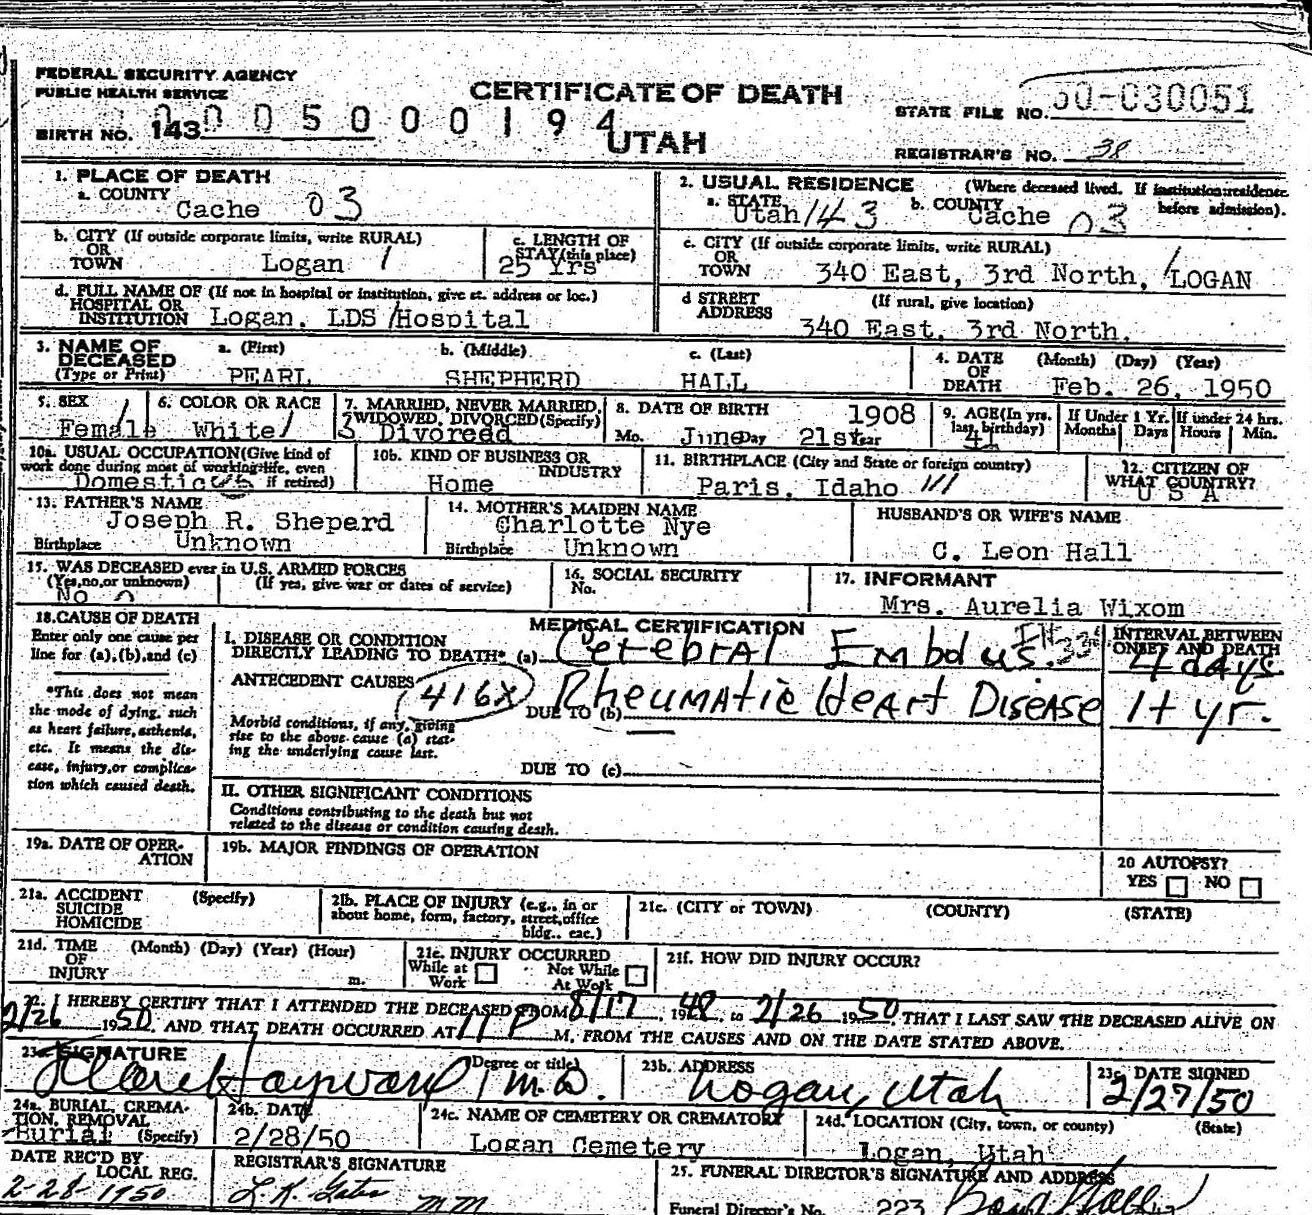 FEDERAL SECURITY AGENCY
PUBLIC HEALTH SERVICE
BIRTH NO. 143 0 0 5 0 0 0 1 9 4
CERTIFICATE OF DEATH
UTAH
STATE FILE NO. 50-030051
REGISTRAR'S NO. 38
1. PLACE OF DEATH
a. COUNTY
Cache 03
2. USUAL RESIDENCE (Where deceased lived. If institution: residence before admission).
a. STATE Utah 143 b. COUNTY Cache 03
b. CITY (If outside corporate limits, write RURAL)
OR
TOWN Logan 1
c. LENGTH OF
STAY (this place)
25 Yrs
c. CITY (If outside corporate limits, write RURAL)
OR
TOWN 340 East, 3rd North, LOGAN
d. FULL NAME OF (If not in hospital or institution, give st. address or loc.)
HOSPITAL OR
INSTITUTION Logan, LDS Hospital
d STREET (If rural, give location)
ADDRESS 340 East, 3rd North,
3. NAME OF DECEASED
(Type or Print)
a. (First) b. (Middle) c. (Last)
PEARL SHEPHERD HALL
4. DATE OF DEATH (Month) (Day) (Year)
Feb. 26, 1950
5. SEX
Female 1
6. COLOR OR RACE
White 1
7. MARRIED, NEVER MARRIED,
WIDOWED, DIVORCED (Specify)
3 Divorced
8. DATE OF BIRTH 1908
Mo. June Day 21st Year
9. AGE (In yrs. last birthday)
41
If Under 1 Yr. If under 24 hrs.
Months Days Hours Min.
10a. USUAL OCCUPATION (Give kind of
work done during most of working life, even
Domestic if retired)
10b. KIND OF BUSINESS OR
INDUSTRY
Home
11. BIRTHPLACE (City and State or foreign country)
Paris, Idaho
12. CITIZEN OF
WHAT COUNTRY?
U S A
13. FATHER'S NAME
Joseph R. Sheperd
Birthplace Unknown
14. MOTHER'S MAIDEN NAME
Charlotte Nye
Birthplace Unknown
HUSBAND'S OR WIFE'S NAME
C. Leon Hall
15. WAS DECEASED ever in U.S. ARMED FORCES
(Yes, no, or unknown) (If yes, give war or dates of service)
No 0
16. SOCIAL SECURITY
No.
17. INFORMANT
Mrs. Aurelia Wixom
18. CAUSE OF DEATH
Enter only one cause per
line for (a), (b), and (c)
*This does not mean
the mode of dying, such
as heart failure, asthenia,
etc. It means the dis-
ease, injury, or complica-
tion which caused death.
MEDICAL CERTIFICATION
I. DISEASE OR CONDITION
DIRECTLY LEADING TO DEATH* (a) Cerebral Embolus.
INTERVAL BETWEEN
ONSET AND DEATH
4 days
ANTECEDENT CAUSES 416X
DUE TO (b) Rheumatic Heart Disease 1+ yr.
Morbid conditions, if any, giving
rise to the above cause (a) stat-
ing the underlying cause last.
DUE TO (c)
II. OTHER SIGNIFICANT CONDITIONS
Conditions contributing to the death but not
related to the disease or condition causing death.
19a. DATE OF OPER-
ATION
19b. MAJOR FINDINGS OF OPERATION
20 AUTOPSY?
YES NO
21a. ACCIDENT (Specify)
SUICIDE
HOMICIDE
21b. PLACE OF INJURY (e.g., in or
about home, form, factory, street, office
bldg., eac.)
21c. (CITY or TOWN) (COUNTY) (STATE)
21d. TIME (Month) (Day) (Year) (Hour)
OF
INJURY m.
21e. INJURY OCCURRED
While at Work Not While At Work
21f. HOW DID INJURY OCCUR?
22. I HEREBY CERTIFY THAT I ATTENDED THE DECEASED FROM 8/17, 1948, to 2/26 1950, THAT I LAST SAW THE DECEASED ALIVE ON
2/26 1950, AND THAT DEATH OCCURRED AT 11 P M. FROM THE CAUSES AND ON THE DATE STATED ABOVE.
23a. SIGNATURE (Degree or title)
Hayward M.D.
23b. ADDRESS
Logan, Utah
23c. DATE SIGNED
2/27/50
24a. BURIAL, CREMA-
TION, REMOVAL
Burial (Specify)
24b. DATE
2/28/50
24c. NAME OF CEMETERY OR CREMATORY
Logan Cemetery
24d. LOCATION (City, town, or county) (State)
Logan, Utah
DATE REC'D BY
LOCAL REG.
2-28-1950
REGISTRAR'S SIGNATURE
25. FUNERAL DIRECTOR'S SIGNATURE AND ADDRESS
Funeral Director's No. 223